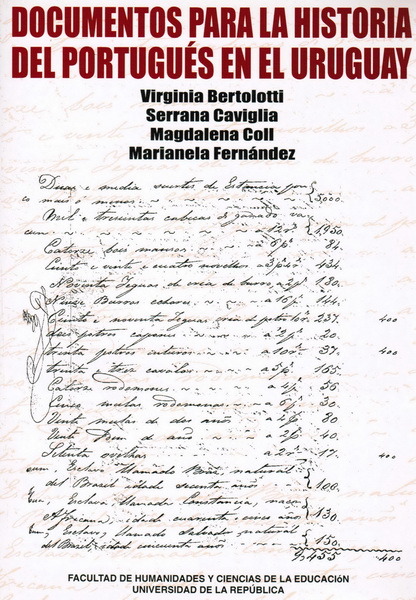 DOCUMENTOS PARA LA HISTORIA
DEL PORTUGUÉS EN EL URUGUAY
Virginia Bertolotti
Serrana Caviglia
Magdalena Coll
Marianela Fernández
Duas e media suertes de Estancia
mais ó menos ~ ~ ~ 5,000
Mil e trecentas cabecas de ganado va
cum ~ ~ ~ 1,950
Catorze bois mansos ~ ~ a 6p. 84
Cento e vente e cuatro novelhos 434
Noventa Yeguas de cria de burro a 2p. 180
Nueve Burros ~ ~ a 16p. 144
Cento e noventa Yeguas cria de 237. 400
des potros ~ a 2p. 20
trenta potros enteros ~ 37. 400
trenta e tres cavalos ~ a 5p. 165
Catorze redomones ~ ~ a 4p.
Cinco mulas redomonas ~ a 6p. 30
Vente mulas de dos años ~ a 4p. 80
Vente de año ~ ~ a 2p. 40
Setenta ovelhas ~ 17. 400
um, Esclavo llamado natural
del Brasil idade secenta años ~ 100
Esclava, llamada Constancia, nacao
Africana, idade cuarenta e años 130
Esclavo, llamado Salvador natural
del Brasil, idade cincuenta años ~ ~ 150
400
FACULTAD DE HUMANIDADES Y CIENCIAS DE LA EDUCACIóN
UNIVERSIDAD DE LA REPÚBLICA